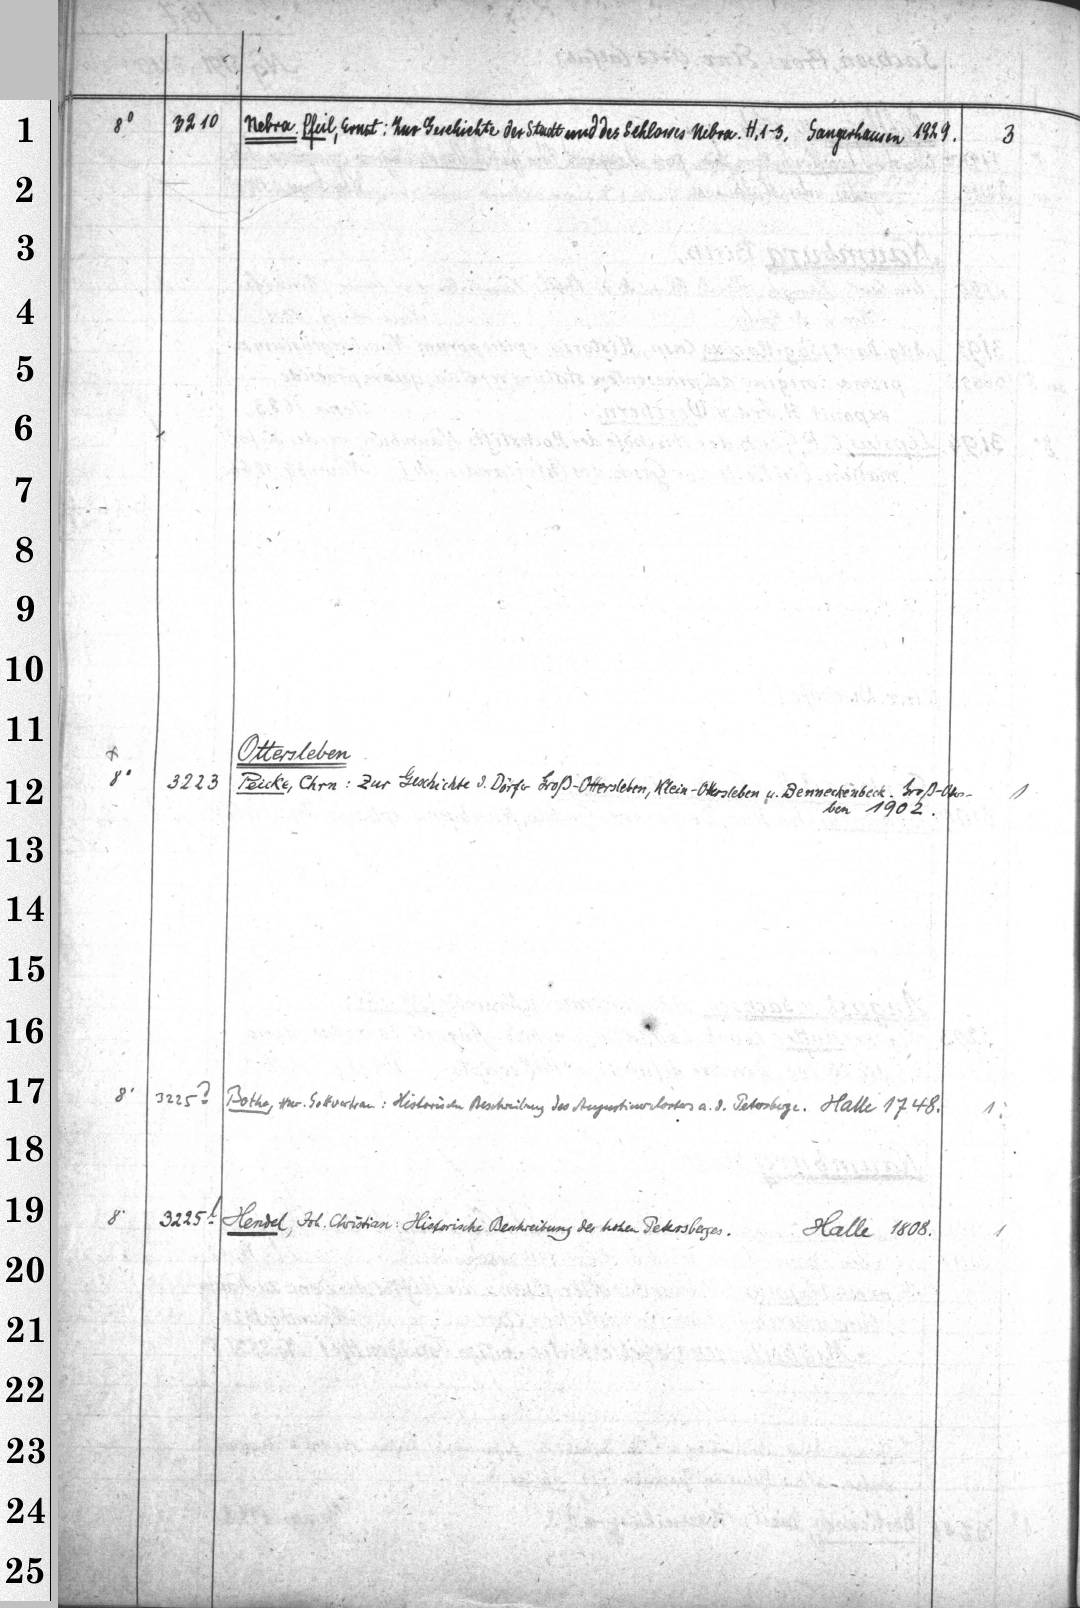 1
2
3
4
5
6
7
8
9
10
11
12
13
14
15
16
17
18
19
20
21
22
23
24
25
8° 3210 Nebra. Pfeil, Ernst: Zur Geschichte der Stadt und des Schlosses Nebra. H. 1-3. Sangerhausen 1929. 3
Ottersleben
x
8° 3223 Peicke, Chrn: Zur Geschichte d. Dörfer Groß-Ottersleben, Klein-Ottersleben u. Benneckenbeck. Groß-Ottersle- 1
ben 1902.
8° 3225 a Bothe, Gottvertrau: Historische Beschreibung des Augustinerklosters a. d. Petersberge. Halle 1748. 1
8° 3225 b Hendel, Joh. Christian: Historische Beschreibung des hohen Petersberges. Halle 1808. 1